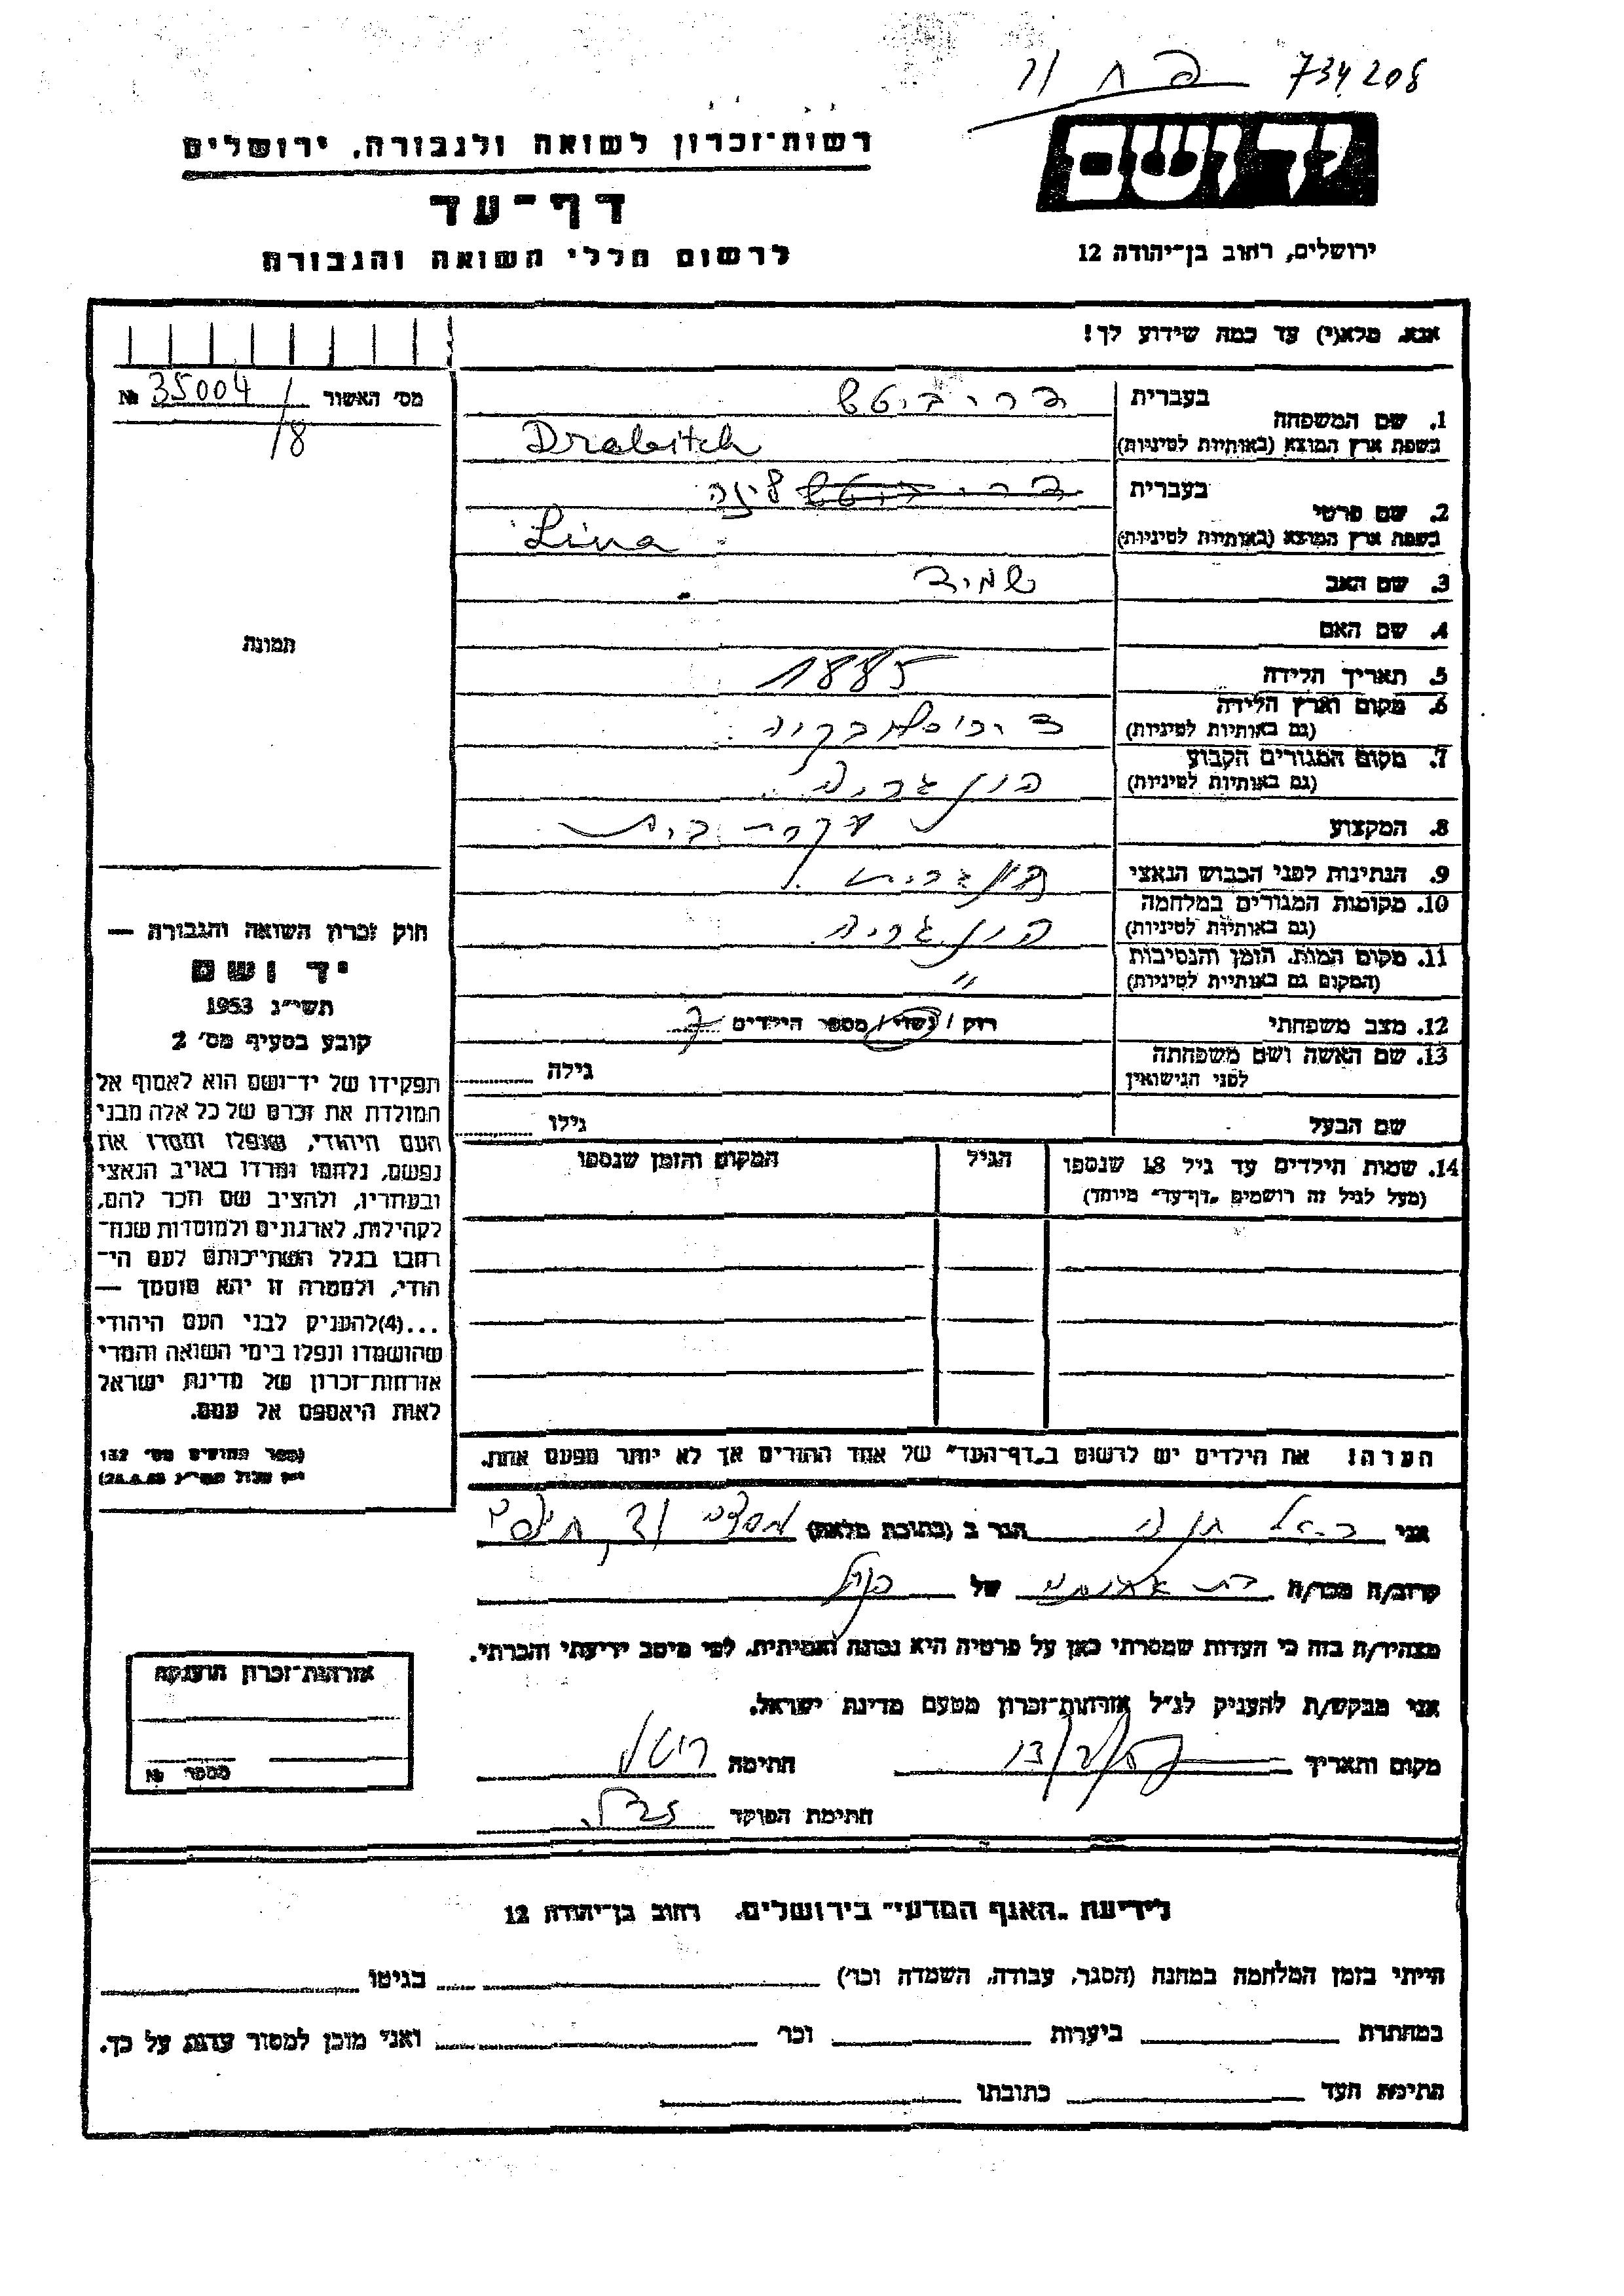 734208
יד ושם
רשות-זכרון לשואה ולגבורה, ירושלים
דף-עד
לרשום חללי השואה והגבורה
ירושלים, רחוב בן-יהודה 12
אנא, מלא(י) עד כמה שידוע לך!
מס' האשור № 35004/8
1. שם המשפחה בעברית דרייביטש
בשפת ארץ המוצא (באותיות לטיניות) Drabitch
2. שם פרטי בעברית לינה
בשפת ארץ המוצא (באותיות לטיניות) Lina
3. שם האב
4. שם האם
5. תאריך הלידה 1885
6. מקום וארץ הלידה
(גם באותיות לטיניות)
7. מקום המגורים הקבוע הונגריה
(גם באותיות לטיניות)
8. המקצוע עקרת בית
9. הנתינות לפני הכבוש הנאצי הונגרית
10. מקומות המגורים במלחמה הונגריה
(גם באותיות לטיניות)
11. מקום המות, הזמן והנסיבות "
(המקום גם באותיות לטיניות)
12. מצב משפחתי רוק / נשוי / מספר הילדים 7
13. שם האשה ושם משפחתה
לפני הנישואין גילה
שם הבעל גילו
14. שמות הילדים עד גיל 18 שנספו הגיל המקום והזמן שנספו
(מעל לגיל זה רושמים "דף-עד" מיוחד)
הערה: את הילדים יש לרשום ב"דף-העד" של אחד ההורים אך לא יותר מפעם אחת.
תמונה
חוק זכרון השואה והגבורה —
יד ושם
תשי"ג 1953
קובע בסעיף מס' 2
תפקידו של יד-ושם הוא לאסוף אל
המולדת את זכרם של כל אלה מבני
העם היהודי, שנפלו ומסרו את
נפשם, נלחמו ומרדו באויב הנאצי
ובעוזריו, ולהציב שם וזכר להם,
לקהילות, לארגונים ולמוסדות שנח-
רבו בגלל השתייכותם לעם הי-
הודי, ולמטרה זו יהא מוסמך —
...(4)להעניק לבני העם היהודי
שהושמדו ונפלו בימי השואה והמרי
אזרחות-זכרון של מדינת ישראל
לאות היאספם אל עמם.
(ספר החוקים מס' 132
אני הגר ב (כתובת מלאה)
קרוב/ה מכר/ה של
מצהיר/ה בזה כי העדות שמסרתי כאן על פרטיה היא נכונה ואמיתית, לפי מיטב ידיעתי והכרתי.
אני מבקש/ת להעניק לנ"ל אזרחות-זכרון מטעם מדינת ישראל.
מקום ותאריך חתימה
חתימת הפוקד
אזרחות-זכרון הוענקה
מספר №
לידיעת "האגף המדעי" בירושלים, רחוב בן-יהודה 12
הייתי בזמן המלחמה במחנה (הסגר, עבודה, השמדה וכו') בגיטו
במחתרת ביערות וכו' ואני מוכן למסור עדות על כך.
חתימת העד כתובתו